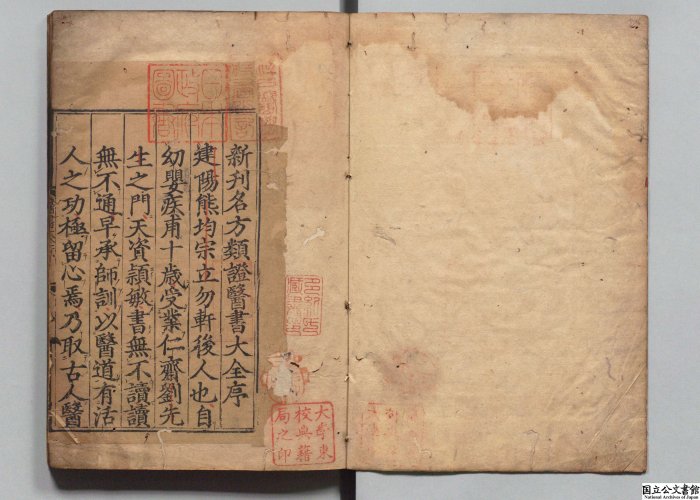 新刊名方類證醫書大全序
建陽熊均宗立勿軒後人也自
幼嬰疾甫十歳受業仁齋劉先
生之門天資頴敏書無不讀讀
無不通早承師訓以醫道有活
人之功極留心焉乃取古人醫
大學東
校典籍
局之印
国立公文書館
National Archives of Japan